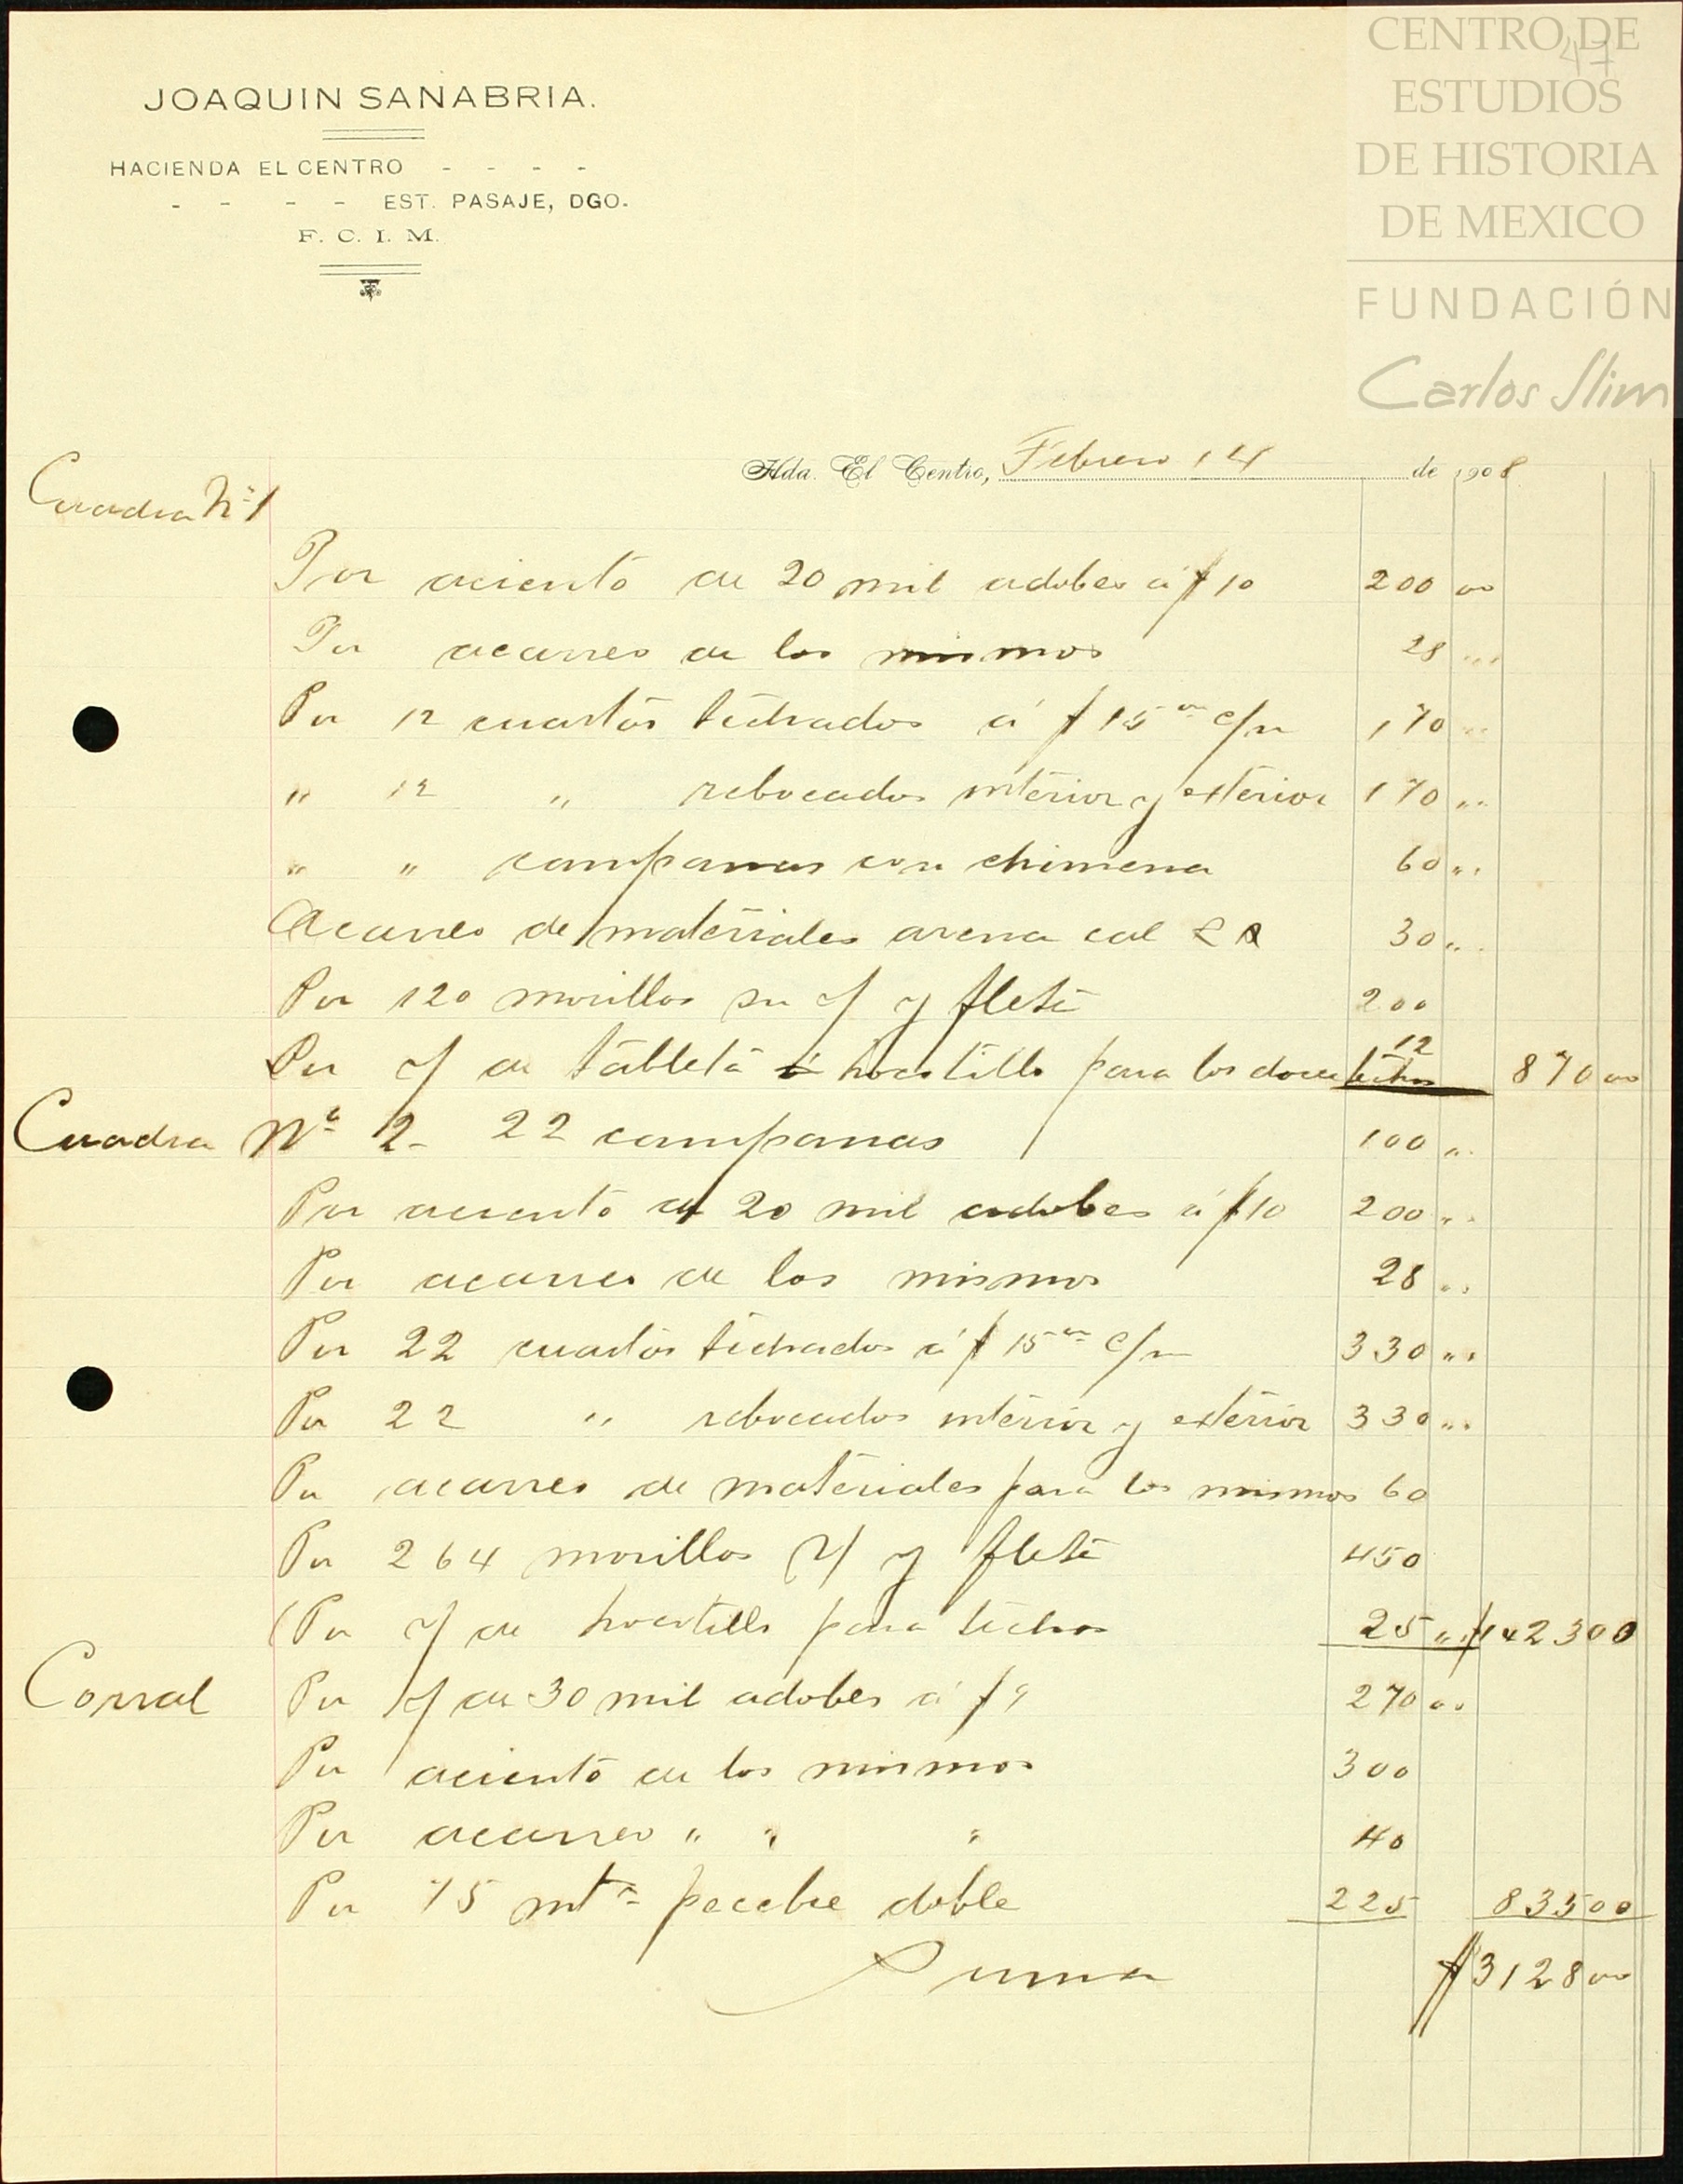 CENTRO DE
ESTUDIOS
DE HISTORIA
DE MEXICO
FUNDACIÓN
Carlos Slim
47
JOAQUIN SANABRIA.
HACIENDA EL CENTRO - - - -
- - - - EST. PASAJE, DGO.
F. C. I. M.
Hda. El Centro, Febrero 14 de 1908
Cuadra Nº 1
Por aciento de 20 mil adobes á $10 200 00
Por acarreo de los mismos 28 "
Por 12 cuartos techados á $15 00 c/u 170 "
" 12 " rebocados interior y exterior 170 "
" " campanas con chimena 60 "
Acarreo de materiales arena cal 30 "
Por 120 morillos su y flete 200
Por de tableta ó hortillo para los doce techos 12 870 00
Cuadra Nº 2 - 22 campanas 100 "
Por aciento de 20 mil adobes á $10 200 "
Por acarreo de los mismos 28 "
Por 22 cuartos techados á $15 00 c/u 330 "
Por 22 " rebocados interior y exterior 330 "
Por acarreo de materiales para los mismos 60
Por 264 morillos y flete 450
Por de hortillo para techos 25 " $1423 00
Corral Por de 30 mil adobes á $9 270 00
Por aciento de los mismos 300
Por acarreo " " " 40
Por 75 mts pecebre doble 225 835 00
Suma $3128 00